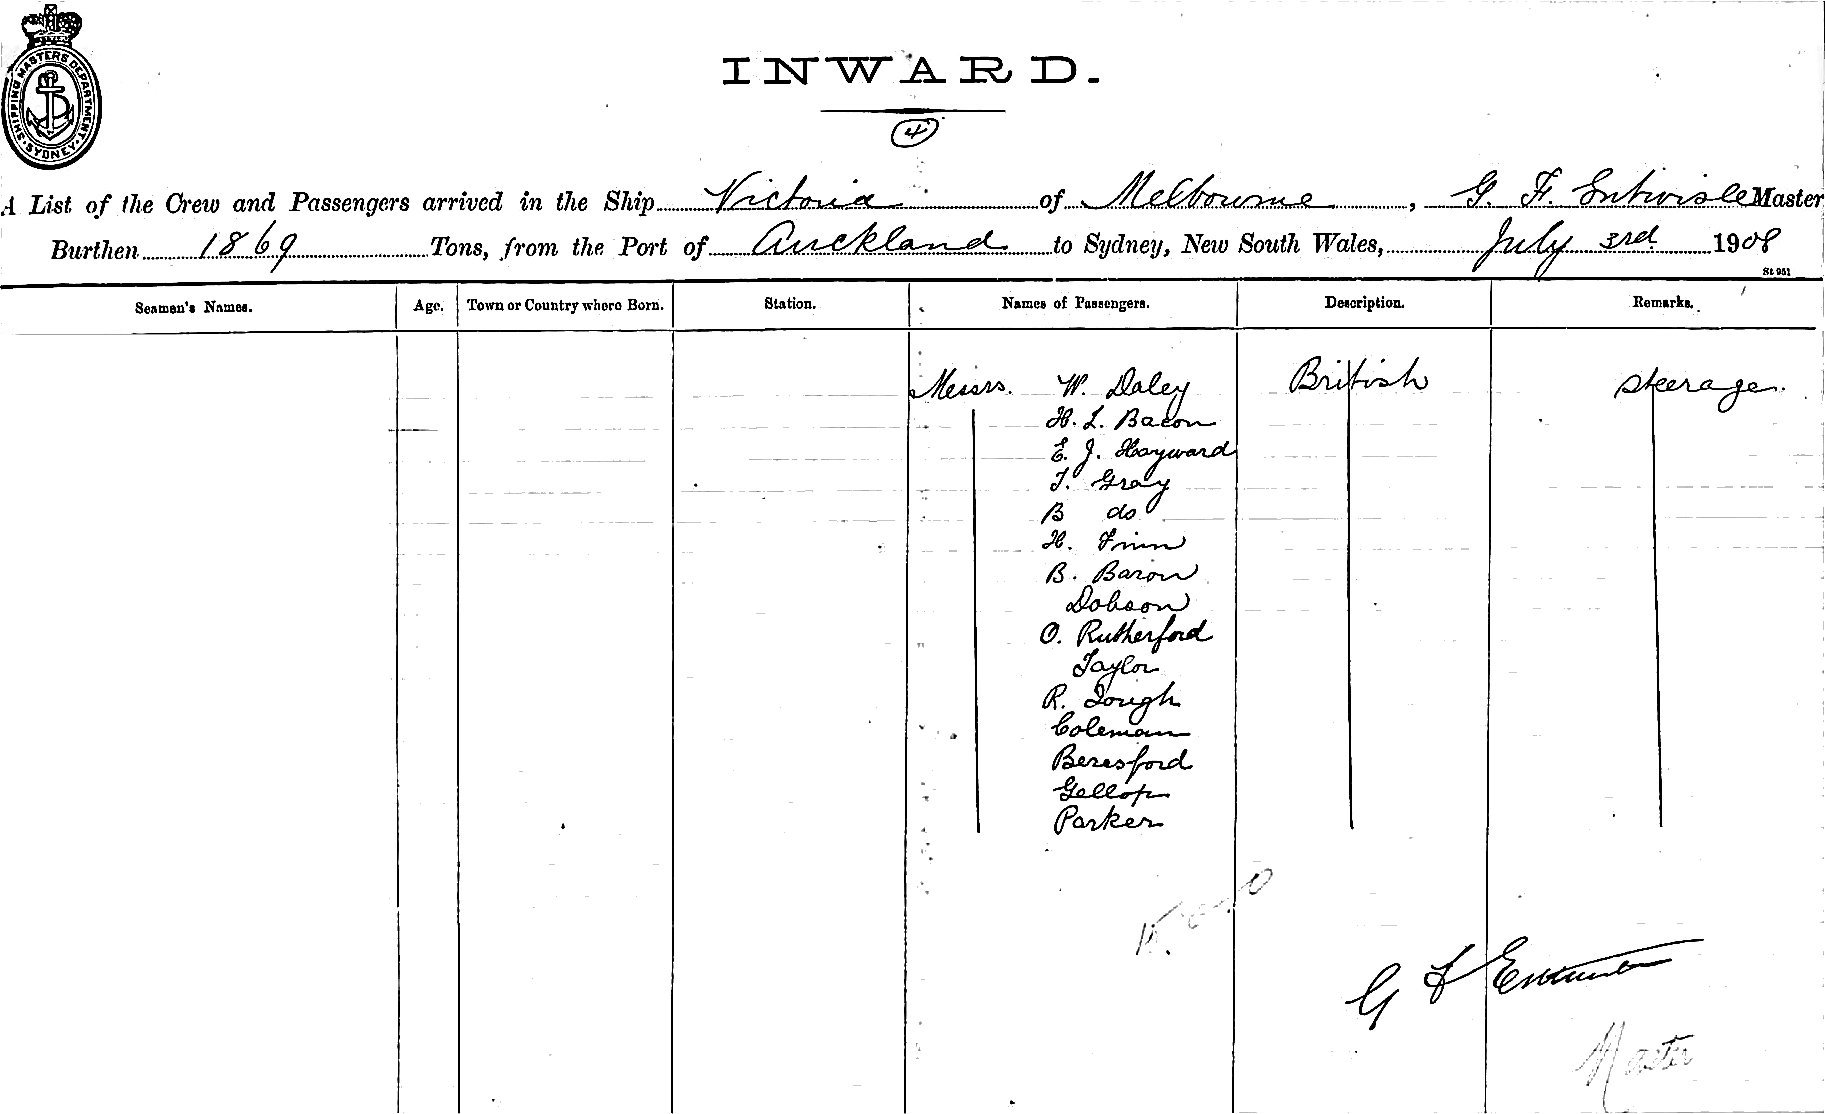 SHIPPING MASTERS DEPARTMENT. SYDNEY.
INWARD.
4
A List of the Crew and Passengers arrived in the Ship Victoria of Melbourne, G. F. Entwisle Master
Burthen 1869 Tons, from the Port of Auckland to Sydney, New South Wales, July 3rd 1908
St 951
Seamen's Names. Age. Town or Country where Born. Station. Names of Passengers. Description. Remarks.
Messrs. W. Daley British Steerage.
H. L. Bacon
E. J. Hayward
T. Gray
B do
H. Finn
B. Baron
Dobson
O. Rutherford
Taylor
R. Tough
Coleman
Beresford
Gellop
Parker
15.
G F Entwisle
Master